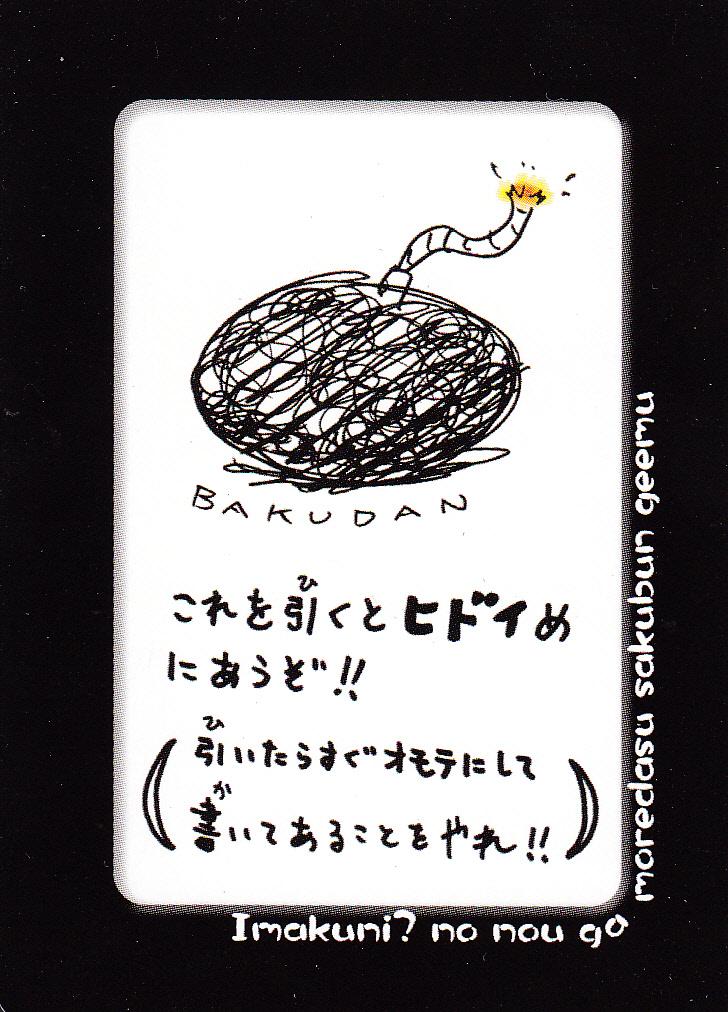 BAKUDAN
これを引くとヒドイめ
にあうぞ!!
(引いたらすぐオモテにして
書いてあることをやれ!!)
Imakuni? no nou ga
moredasu sakubun geemu